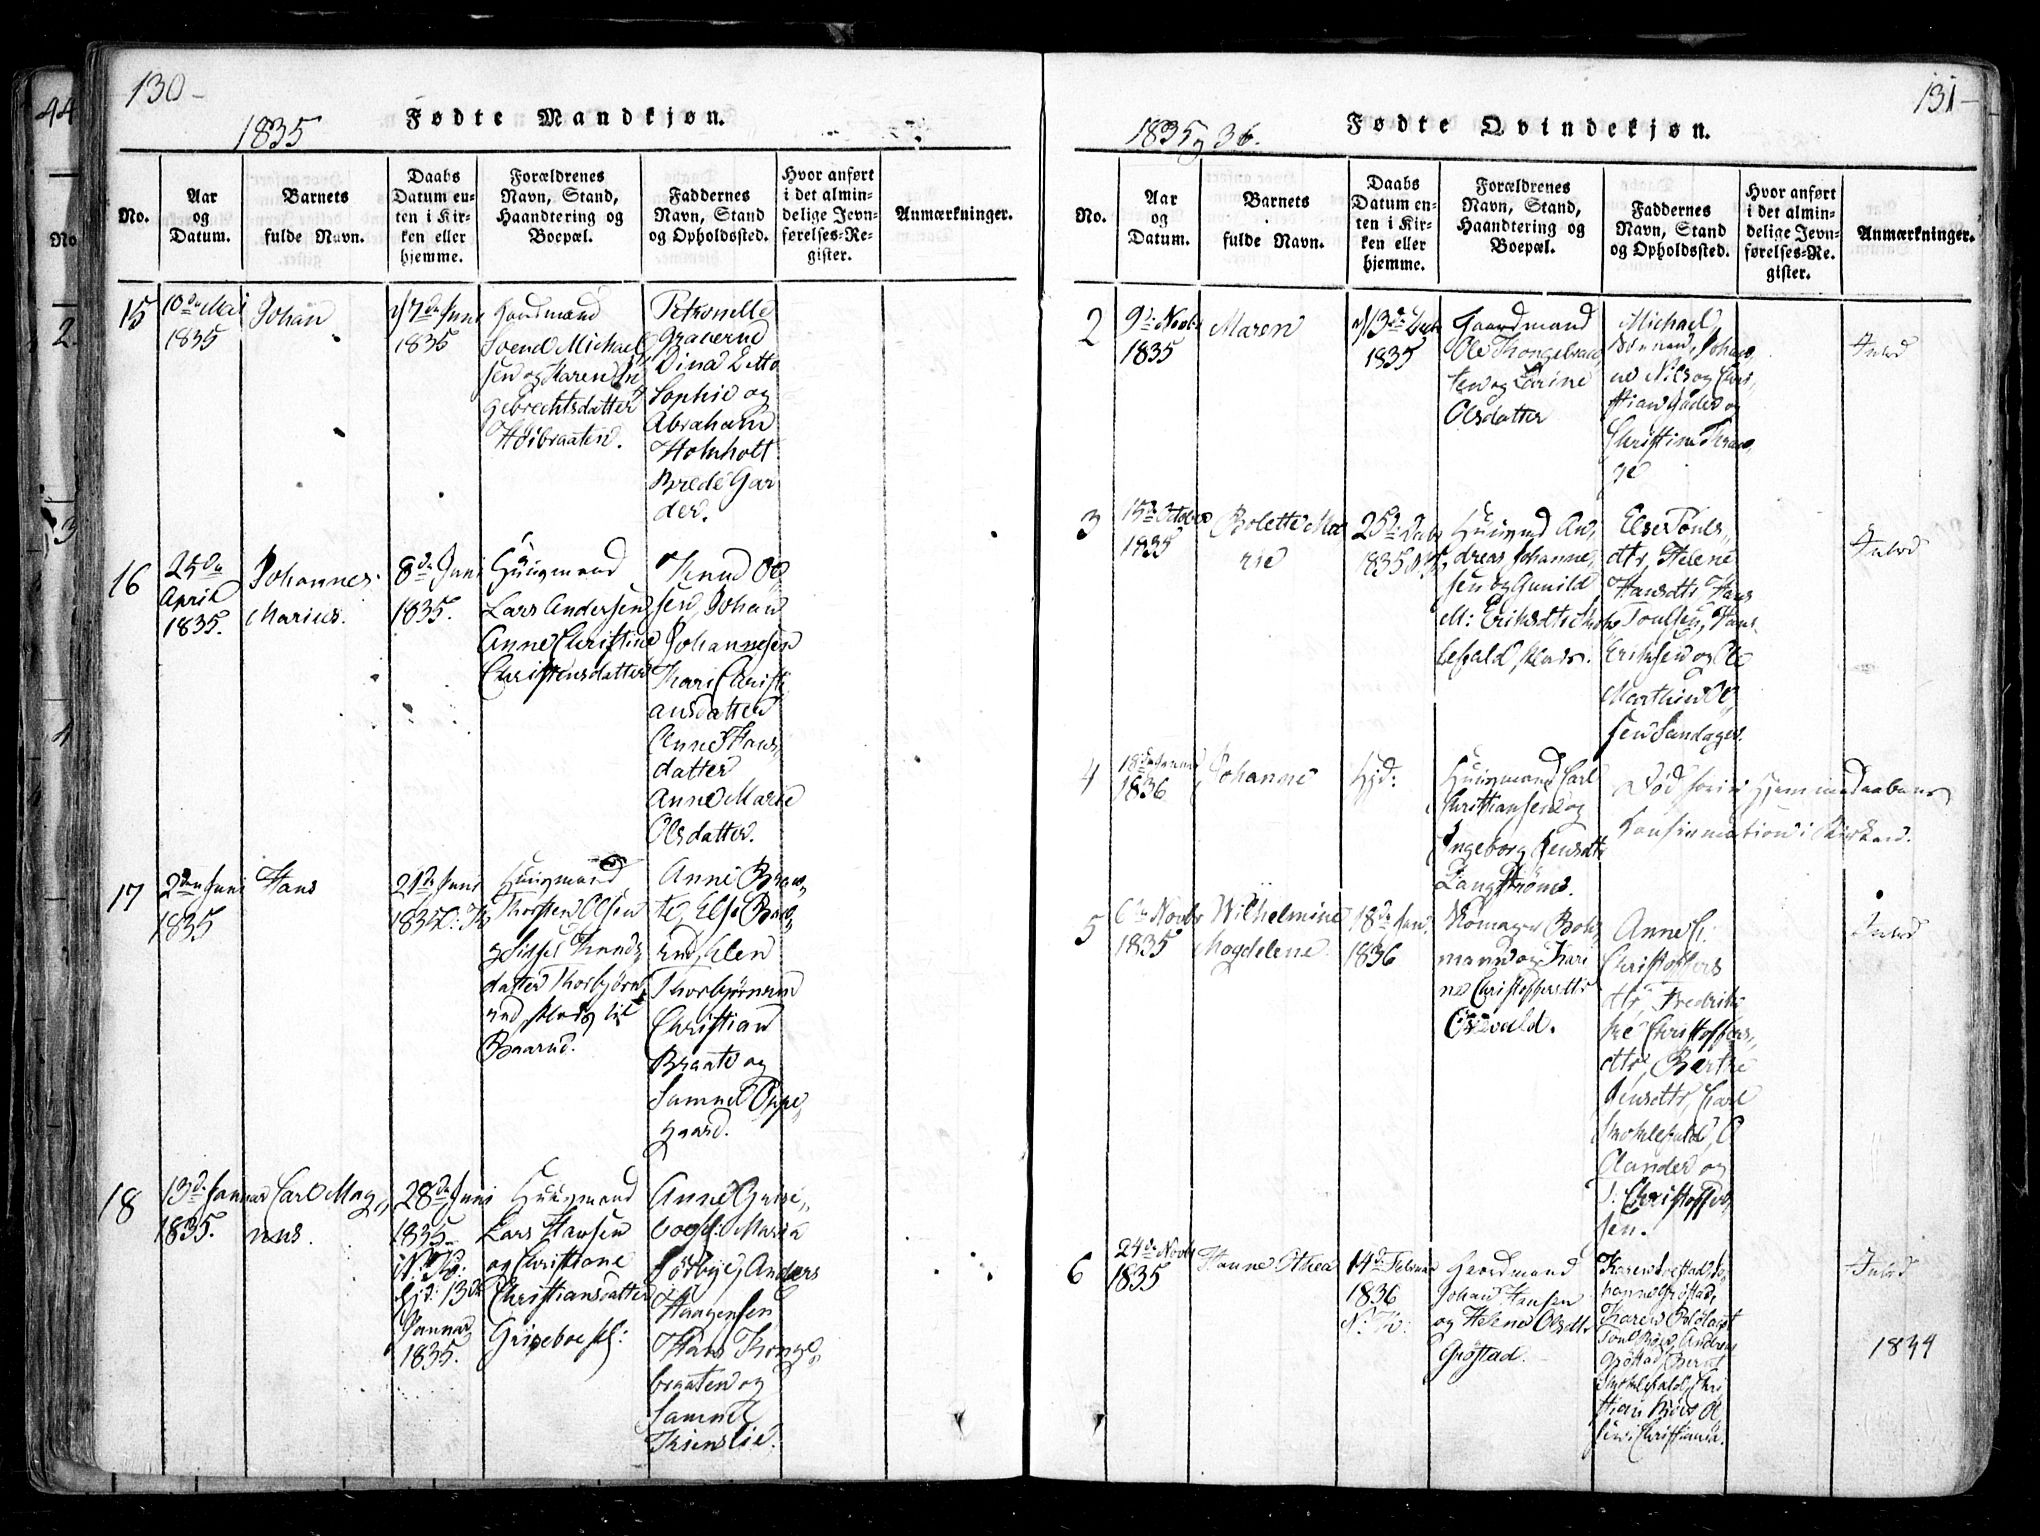 130-
1835
Fødte Mandkjøn.
No.
Aar
og
Datum.
Barnets
fulde Navn.
Daabs
Datum en-
ten i Kir-
ken eller
hjemme.
Forældrenes
Navn, Stand,
Haandtering og
Boepæl.
Faddernes
Navn, Stand
og Opholdssted.
Hvor anført
i det almin-
delige Jevn-
førelses-Re-
gister.
Anmærkninger.
15
10de Mai
1835
Johan
7de Juni
1835
Gaardmand
Svend Michael,,
sen og Karen In,,
gebrechtsdatter
Høibraaten.
Petronelle
Dina Lette
Sophie og
Abraham
Holmholt
Brede Gar
der.
16
25de
April
1835.
Johannes
Marius.
8de Juni
1835.
Huusmand
Lars Andersen
Anne Christine
Christensdatter
Knud Ol,,
sen, Johan
Johannesen
Kari Christi
ansdatter
Anne Hans,,
datter
Anne Marie
Olsdatter.
17
2den Juni
1835
Hans
21de Juni
1835
Huusmand
Thorsten Olsen
og Sidsel Knuds,,
datter Thorbjørn
rud, Plads til
Baarud.
Anne Braa,,
te, Else Baa,,
rud, Elen
Thorbjørnrud
Christian
Braate og
Samuel Oppe,,
gaard.
18
13de Januar
1835.
Carl Mag,,
nus.
28de Juni
1835.
N: K:
Hjd: 13de
Januar
1835.
Huusmand
Lars Hansen
og Christiane
Christiansdatter
Griseboe
Anne Grise
boe, Maria
Sørbye, Anders
Haagensen
Hans Konge,,
braaten og
Samuel
Trienslie.
131-
1835 og 36.
Fødte Qvindekjøn.
No.
Aar
og
Datum.
Barnets
fulde Navn.
Daabs
Datum en-
ten i Kir-
ken eller
hjemme.
Forældrenes
Navn, Stand,
Haandtering og
Boepæl.
Faddernes
Navn, Stand
og Opholdssted.
Hvor anført
i det almin-
delige Jevn-
førelses-Re-
gister.
Anmærkninger.
2
9de Novbr
1835
Maren
13de Decbr
1835
Gaardmand
Ole Kongebraa,,
ten og Karine
Olsdatter
Michael
Johan,,
ne Nils og Chri,,
stian Gade og
Christine Kran,,
ge
3
15de October
1835
Bolette Ma
rie
25de Decbr
1835 N. K.
Huusmd An,,
dreas Johanne,,
sen og Gunild
M: Eriksdtr
Plads.
Else Tons,,
dtr, Helene
Hansdtr Hans
Poulsen, Hans
Eriksen og Ole
Marthin Ol,,
sen Sandager.
4
18de Januar
1836
Johanne
Hjd:
Huusmand Carl
Christiansen og
Ingeborg Jensdtr
Langstrøms.
Død forind Hjemmedaabens
Konfirmation i Kirken.
5
6te Novbr
1835
Wilhelmine
Magdelene
18de Jan.
1836
Romager Boh,,
mann og Kari
ne Christoffersdtr
Osevald.
Anne C:
Christoffers
dtr, Fredrik
ke Christoffers,,
dtr, Berthe
Jensdtr, Carl
Skoklefald, O
Olander og
J: Christoffer,,
sen.
6
24de Novbr
1835
Hanne Othea
14de Februar
1836
N: K:
Gaardmand
Johan Hansen
og Helene Olsdtr
Grøstad.
hanne Grøstad,
Grøstad, Bernt
Skoklefald, Chri
stian Moes O
sen Christiania.
1844